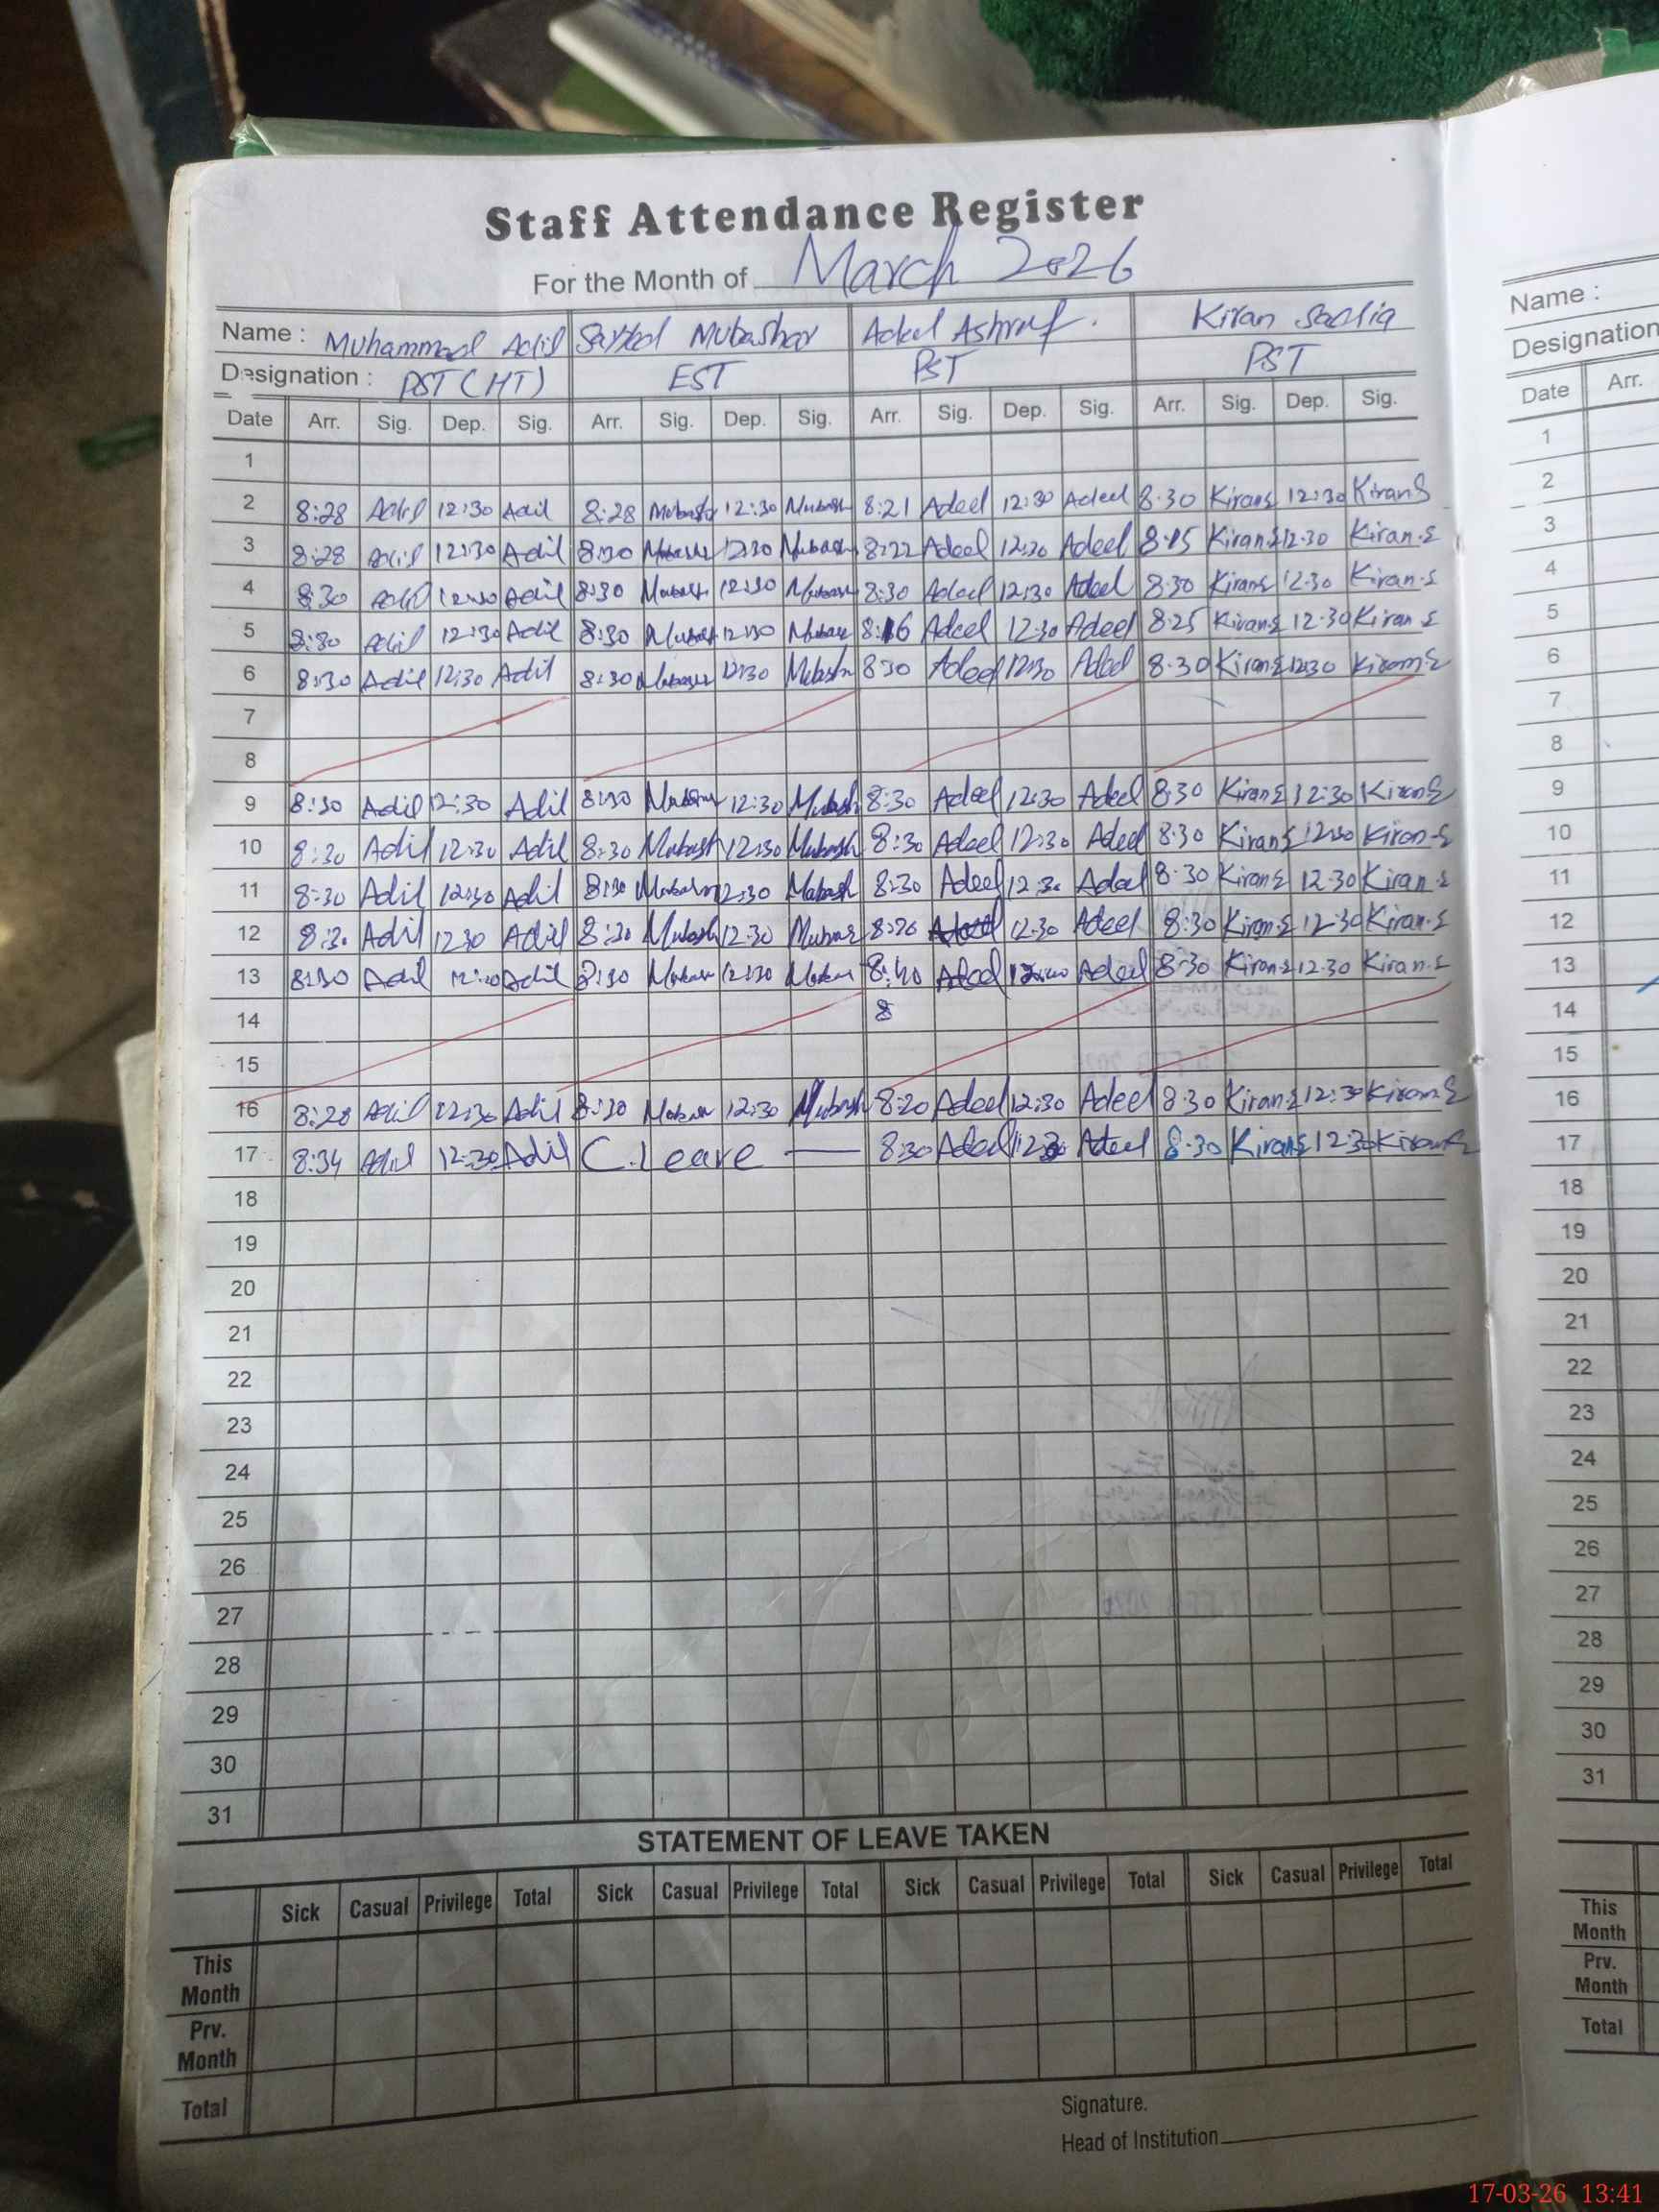 Staff Attendance Register
For the Month of March 2026
Name : Muhammad Adil Sayyed Mubashar Adeel Ashraf. Kiran Sadiq
Designation : PST (HT) EST PST PST
Date Arr. Sig. Dep. Sig. Arr. Sig. Dep. Sig. Arr. Sig. Dep. Sig. Arr. Sig. Dep. Sig.
1
2 8:28 Adil 12:30 Adil 8:28 Mubash 12:30 Mubash 8:21 Adeel 12:30 Adeel 8:30 Kiran S 12:30 Kiran S
3 8:28 Adil 12:30 Adil 8:30 12:30 Mubash 8:22 Adeel 12:30 Adeel Kiran S 12:30 Kiran.S
4 8:30 Adil 12:30 Adil 8:30 Mubash 12:30 Mubash 8:30 Adeel 12:30 Adeel 8:30 Kiran S 12:30 Kiran.S
5 8:30 Adil 12:30 Adil 8:30 Mubash 12:30 8:16 Adeel 12:30 Adeel 8:25 Kiran S 12:30 Kiran S
6 8:30 Adil 12:30 Adil 8:30 12:30 Mubash 8:30 Adeel 12:30 Adeel 8:30 Kiran S 12:30 Kiran.S
7
8
9 8:30 Adil 12:30 Adil 8:30 12:30 Mubash 8:30 Adeel 12:30 Adeel 8:30 Kiran S 12:30 Kiran S
10 8:30 Adil 12:30 Adil 8:30 Mubash 12:30 Mubash 8:30 Adeel 12:30 Adeel 8:30 Kiran S 12:30 Kiran.S
11 8:30 Adil 12:30 Adil 8:30 12:30 Mubash 8:30 Adeel 12:30 Adeel 8:30 Kiran S 12:30 Kiran.S
12 8:30 Adil 12:30 Adil 8:30 Mubash 12:30 8:20 Adeel 12:30 Adeel 8:30 Kiran.S 12:30 Kiran.S
13 8:30 Adil Adil 8:30 12:30 8:40 Adeel Adeel 8:30 Kiran.S 12:30 Kiran.S
14 8
15
16 8:28 Adil 12:30 Adil 8:30 12:30 Mubash 8:20 Adeel 12:30 Adeel 8:30 Kiran S 12:30 Kiran.S
17 8:34 Adil 12:30 Adil C.Leave — 8:30 Adeel 12:30 Adeel 8:30 Kiran S 12:30 Kiran S
18
19
20
21
22
23
24
25
26
27
28
29
30
31
STATEMENT OF LEAVE TAKEN
Sick Casual Privilege Total Sick Casual Privilege Total Sick Casual Privilege Total Sick Casual Privilege Total
This
Month
Prv.
Month
Total
Signature.
Head of Institution
Name :
Designation
Date Arr.
1
2
3
4
5
6
7
8
9
10
11
12
13
14
15
16
17
18
19
20
21
22
23
24
25
26
27
28
29
30
31
This
Month
Prv.
Month
Total
17-03-26 13:41